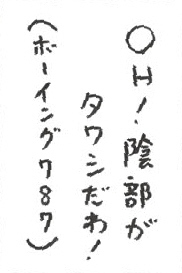 ○H!陰部が
タワシだわ!
(ボーイング787)